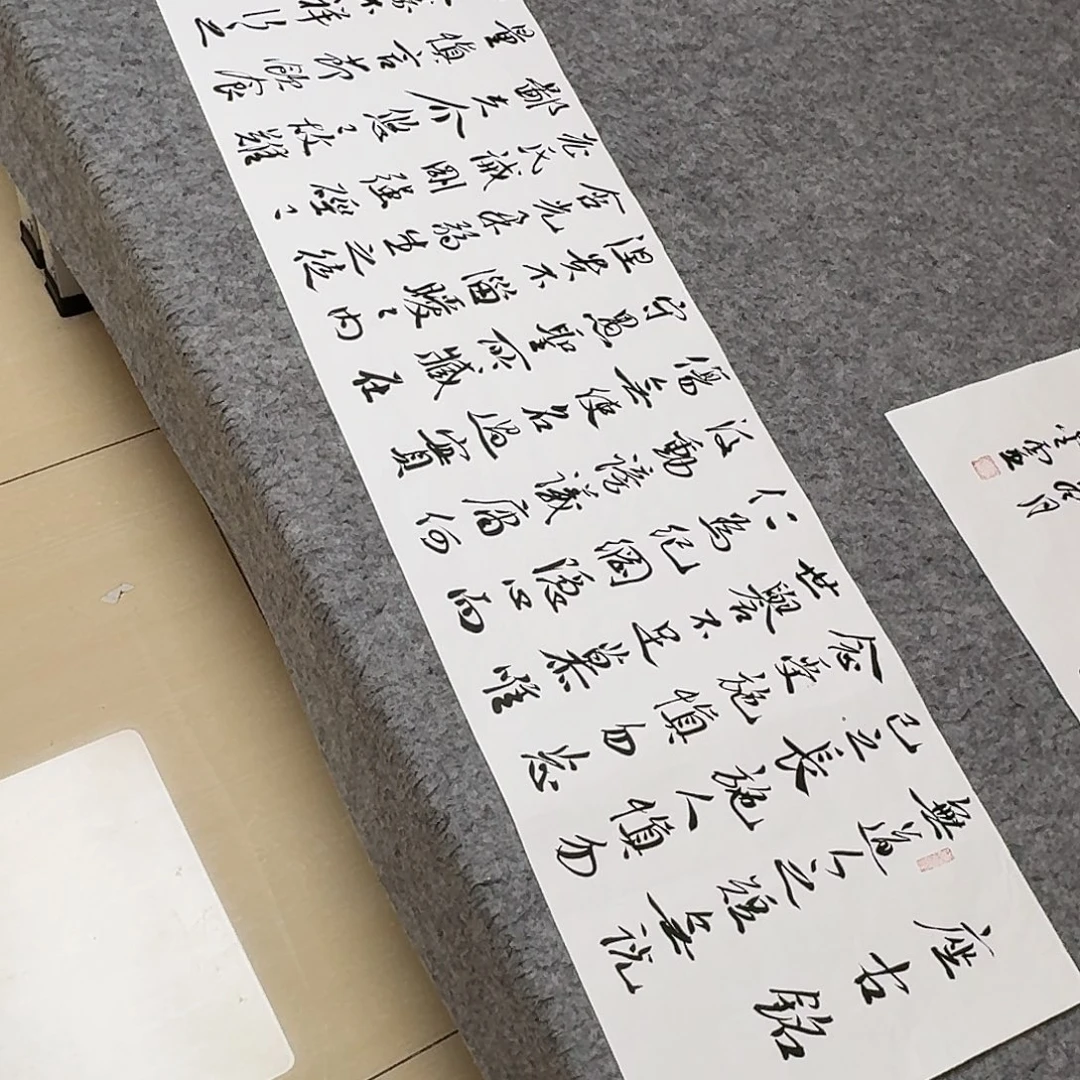 座右銘
無道人之短無說
己之長施人慎勿
念受施慎勿忘
世譽不足慕唯
仁為紀綱隱心而
後動謗議庸何
傷無使名過實
守愚聖所臧在
涅貴不淄曖々內
含光柔弱生之徒
老氏誡剛強硜々
鄙夫介悠々故難
量慎言節飲食
不祥行之